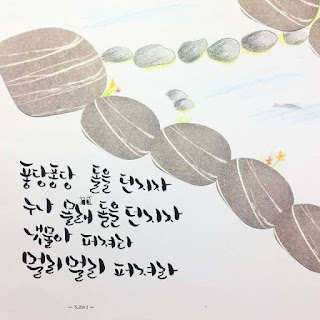 퐁당퐁당 돌을 던지자
누나 몰래 돌을 던지자
냇물아 퍼져라
멀리 멀리 퍼져라